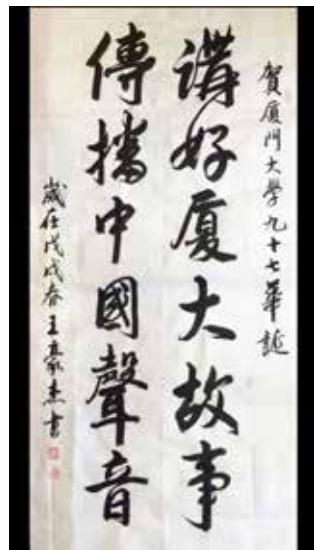 賀廈門大學九十七華誕
講好廈大故事
傳播中國聲音
歲在戊戌春王豪杰書